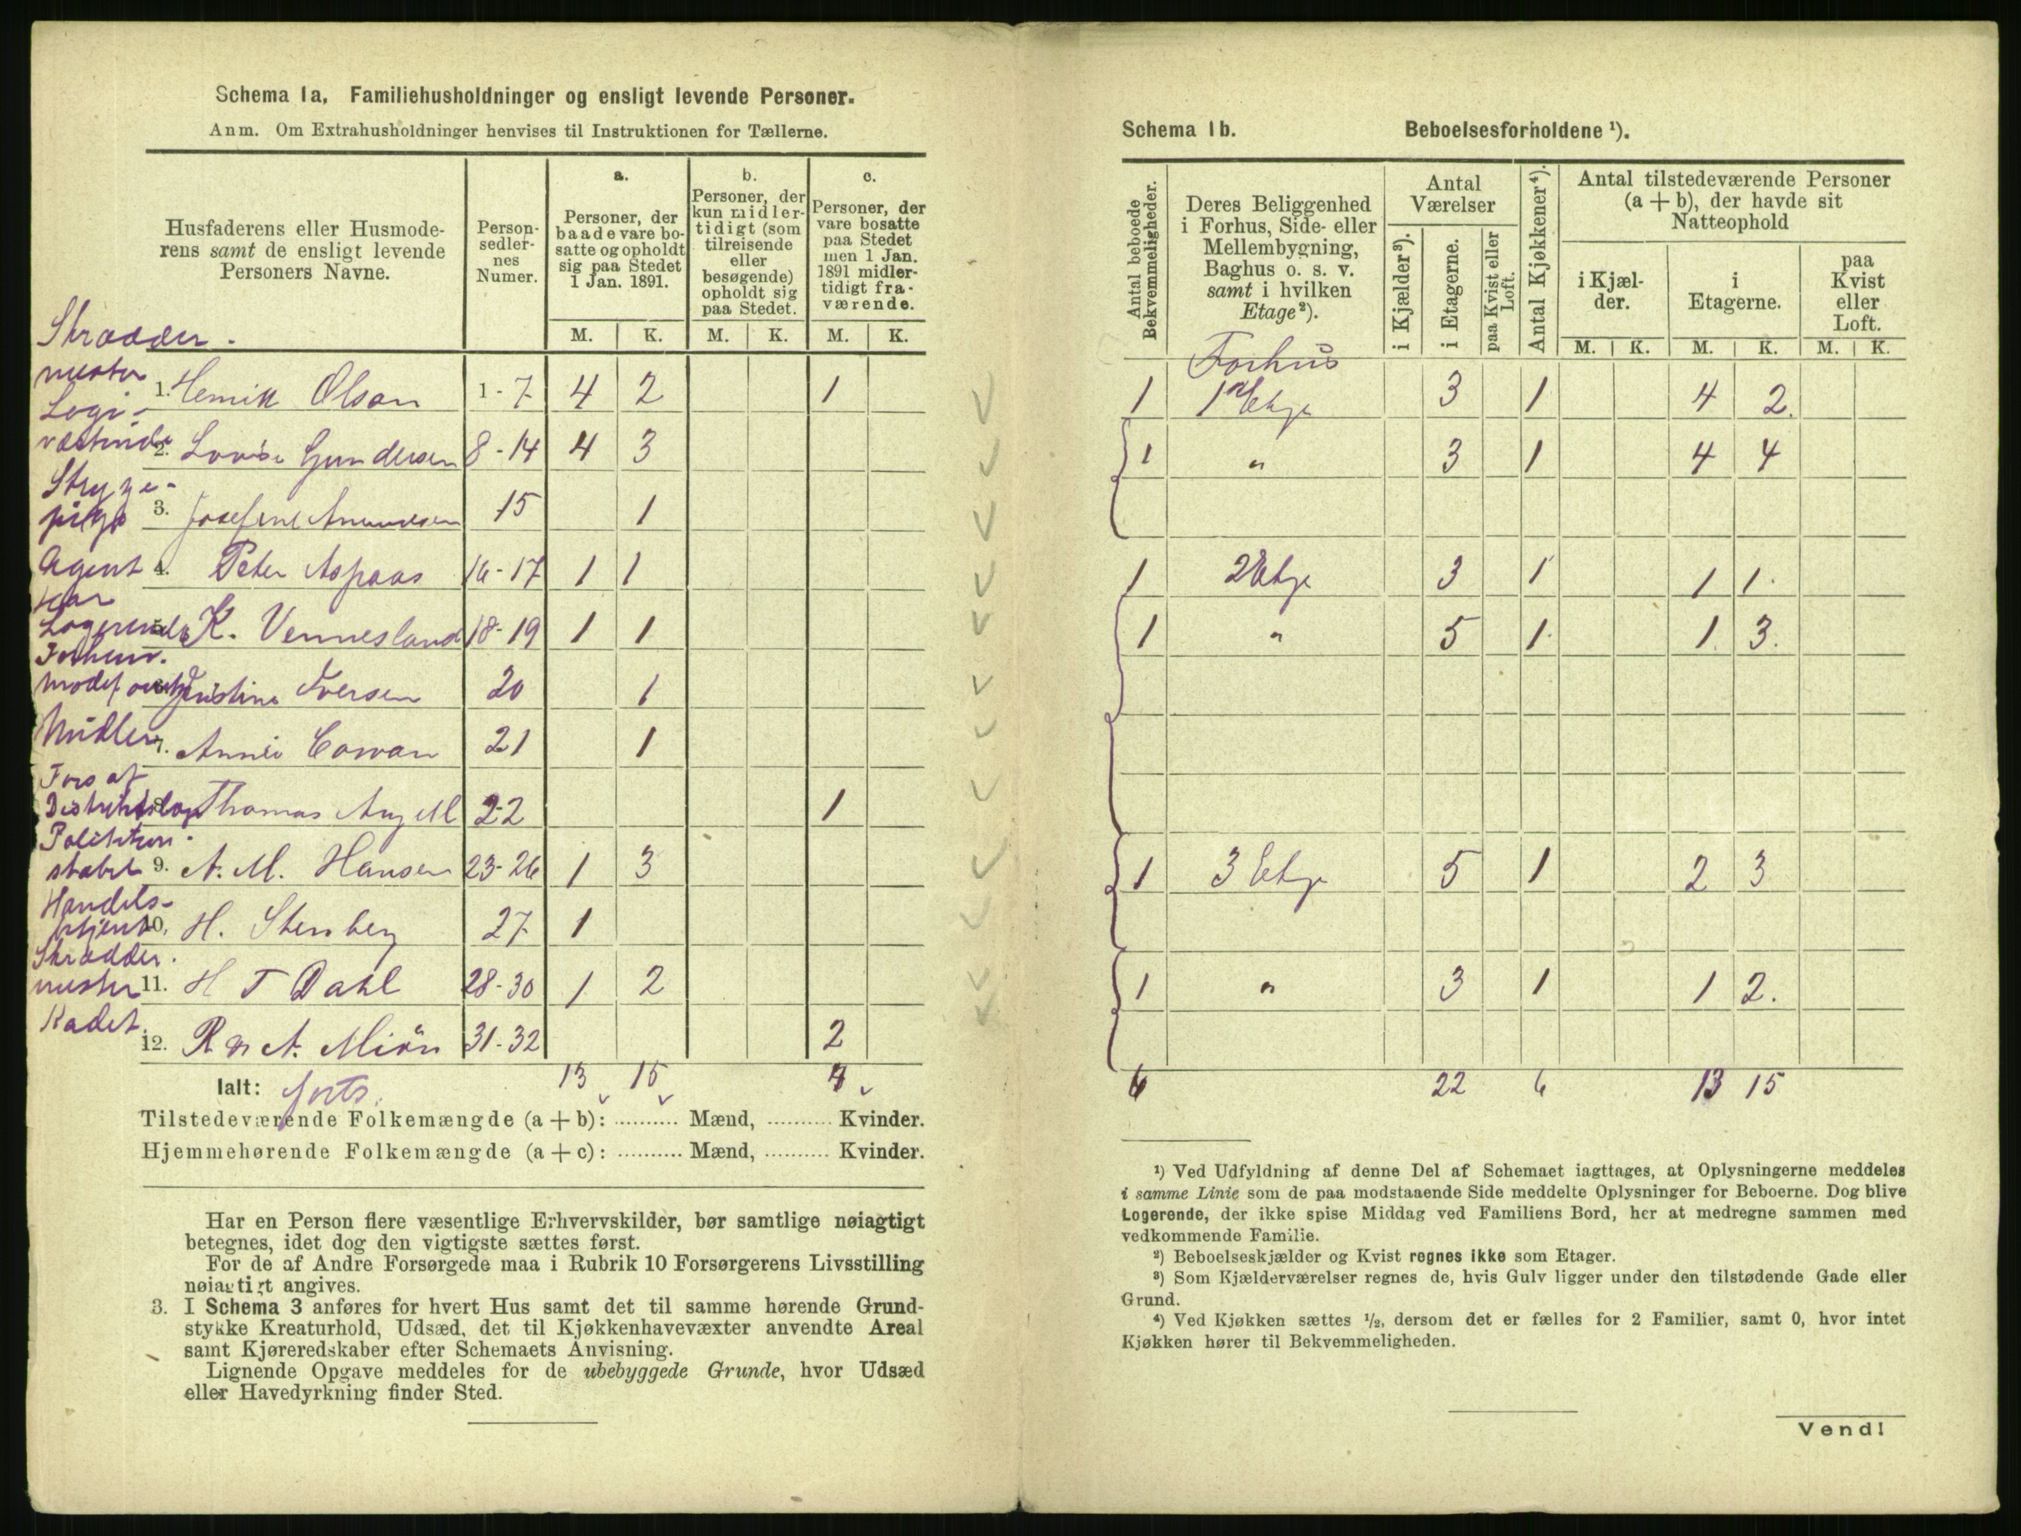 Schema 1a, Familiehusholdninger og ensligt levende Personer.
Anm. Om Extrahusholdninger henvises til Instruktionen for Tællerne.
Husfaderens eller Husmode-
rens samt de ensligt levende
Personers Navne.
Person-
sedler-
nes
Numer.
a.
Personer, der
baade vare bo-
satte og opholdt
sig paa Stedet
1 Jan. 1891.
b.
Personer, der
kun midler-
tidigt (som
tilreisende
eller
besøgende)
opholdt sig
paa Stedet.
c.
Personer, der
vare bosatte
paa Stedet
men 1 Jan.
1891 midler-
tidigt fra-
værende.
M. K. M. K. M. K.
Skrædder-
mester 1. Henrik Olsen 1-7 4 2 1
Logi-
værtinde 2. Lovise Gundersen 8-14 4 3
Stryge-
pige 3. Josefine Amundsen 15 1
Agent 4. Peter Aspaas 16-17 1 1
Har
Logerende K. Vennesland 18-19 1 1
Forhenv.
Kristine Iversen 20 1
Midler 7. Annie Cowan 21 1
Fors af
Thomas Angell 22 1
Politikon-
stabel 9. A. M. Hansen 23-26 1 3
Handels-
betjent 10. H. Stenberg 27 1
Skrædder-
mester 11. H T Dahl 28-30 1 2
Kadet. 12. R og A. Miøn 31-32 2
Ialt: forts. 13 15 4
Tilstedeværende Folkemængde (a + b): .......... Mænd, .......... Kvinder.
Hjemmehørende Folkemængde (a + c): .......... Mænd, .......... Kvinder.
Har en Person flere væsentlige Erhvervskilder, bør samtlige nøiagtigt
betegnes, idet dog den vigtigste sættes først.
For de af Andre Forsørgede maa i Rubrik 10 Forsørgerens Livsstilling
nøiagtigt angives.
3. I Schema 3 anføres for hvert Hus samt det til samme hørende Grund-
stykke Kreaturhold, Udsæd, det til Kjøkkenhavevæxter anvendte Areal
samt Kjøreredskaber efter Schemaets Anvisning.
Lignende Opgave meddeles for de ubebyggede Grunde, hvor Udsæd
eller Havedyrkning finder Sted.
Schema 1b. Beboelsesforholdene ¹).
Antal beboede
Bekvemmeligheder.
Deres Beliggenhed
i Forhus, Side- eller
Mellembygning,
Baghus o. s. v.
samt i hvilken
Etage²).
Antal
Værelser
i Kjælder³).
i Etagerne.
paa Kvist eller
Loft.
Antal Kjøkkener⁴).
Antal tilstedeværende Personer
(a + b), der havde sit
Natteophold
i Kjæl-
der.
i
Etagerne.
paa
Kvist
eller
Loft.
M. K. M. K. M. K.
Forhus
1 1ⁿ Etage 3 1 4 2.
1 " 3 1 4 4
1 2 Etge 3 1 1 1.
1 " 5 1 1 3.
1 3 Etge 5 1 2 3
1 " 3 1 1 2.
6 22 6 13 15
¹) Ved Udfyldning af denne Del af Schemaet iagttages, at Oplysningerne meddeles
i samme Linie som de paa modstaaende Side meddelte Oplysninger for Beboerne. Dog blive
Logerende, der ikke spise Middag ved Familiens Bord, her at medregne sammen med
vedkommende Familie.
²) Beboelseskjælder og Kvist regnes ikke som Etager.
³) Som Kjælderværelser regnes de, hvis Gulv ligger under den tilstødende Gade eller
Grund.
⁴) Ved Kjøkken sættes ½, dersom det er fælles for 2 Familier, samt 0, hvor intet
Kjøkken hører til Bekvemmeligheden.
Vend!